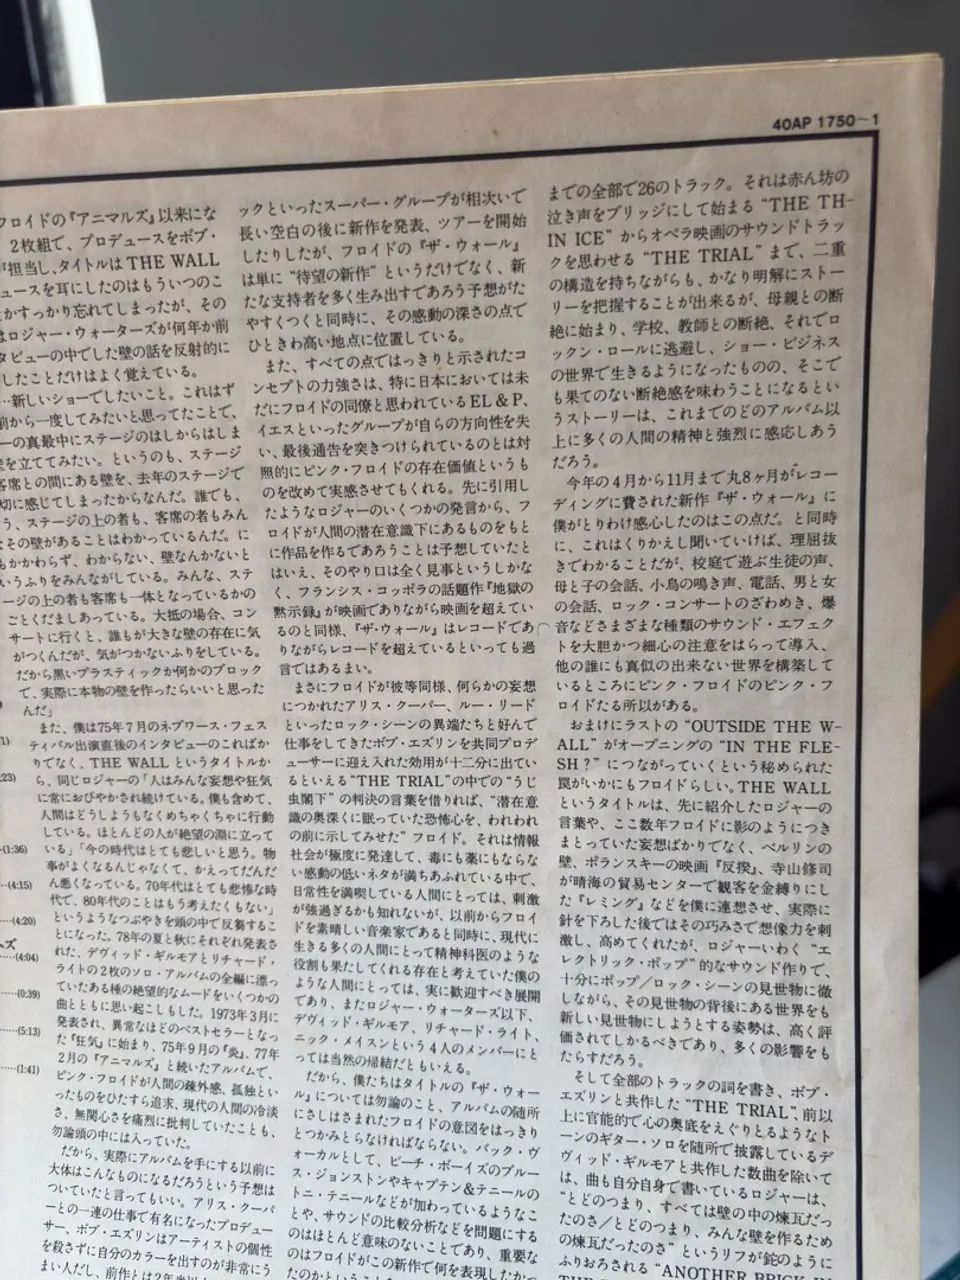 40AP 1750〜1
フロイドの『アニマルズ』以来にな
2枚組で、プロデュースをボブ・
が担当し、タイトルは THE WALL
ュースを耳にしたのはもういつのこ
かすっかり忘れてしまったが、その
はロジャー・ウォーターズが何年か前
タビューの中でした壁の話を反射的に
したことだけはよく覚えている。
…新しいショーでしたいこと。これはず
前から一度してみたいと思ってたことで、
ーの真最中にステージのはしからはしま
を立ててみたい。というのも、ステージ
客席との間にある壁を、去年のステージで
切に感じてしまったからなんだ。誰でも、
う、ステージの上の者も、客席の者もみん
なその壁があることはわかっているんだ。に
もかかわらず、わからない、壁なんかないと
いうふりをみんながしている。みんな、ステ
ージの上の者も客席も一体となっているかの
ごとくだましあっている。大抵の場合、コン
サートに行くと、誰もが大きな壁の存在に気
がつくんだが、気がつかないふりをしている。
だから黒いプラスティックか何かのブロック
で、実際に本物の壁を作ったらいいと思った
んだ」
また、僕は75年7月のネブワース・フェス
ティバル出演直後のインタビューのこればか
りでなく、THE WALL というタイトルか
ら、同じロジャーの「人はみんな妄想や狂気
に常におびやかされ続けている。僕も含めて、
人間はどうしようもなくめちゃくちゃに行動
している。ほとんどの人が絶望の淵に立って
いる」「今の時代はとても悲しいと思う。物
事がよくなるんじゃなくて、かえってだんだ
ん悪くなっている。70年代はとても悲惨な時
代で、80年代のことはもう考えたくもない」
というようなつぶやきを頭の中で反芻するこ
とになった。78年の夏と秋にそれぞれ発表さ
れた、デヴィッド・ギルモアとリチャード・
ライトの2枚のソロ・アルバムの全編に漂っ
ていたある種の絶望的なムードをいくつかの
曲とともに思い起こしもした。1973年3月に
発表され、異常なほどのベストセラーとなっ
た『狂気』に始まり、75年9月の『炎』、77年
2月の『アニマルズ』と続いたアルバムで、
ピンク・フロイドが人間の疎外感、孤独とい
ったものをひたすら追求、現代の人間の冷淡
さ、無関心さを痛烈に批判していたことも、
勿論頭の中には入っていた。
だから、実際にアルバムを手にする以前に
大体はこんなものになるだろうという予想は
ついていたと言ってもいい。アリス・クーパ
ーとの一連の仕事で有名になったプロデュー
サー、ボブ・エズリンはアーティストの個性
を殺さずに自分のカラーを出すのが非常にう
まい人だし、前作とは2年半以
1)
:23)
(1:36)
(4:15)
(4:20)
ムズ
(4:04)
(0:39)
(5:13)
(1:41)
ックといったスーパー・グループが相次いで
長い空白の後に新作を発表、ツアーを開始
したりしたが、フロイドの『ザ・ウォール』
は単に“待望の新作”というだけでなく、新
たな支持者を多く生み出すであろう予想がた
やすくつくと同時に、その感動の深さの点で
ひときわ高い地点に位置している。
また、すべての点ではっきりと示されたコ
ンセプトの力強さは、特に日本においては未
だにフロイドの同僚と思われているEL&P、
イエスといったグループが自らの方向性を失
い、最後通告を突きつけられているのとは対
照的にピンク・フロイドの存在価値というも
のを改めて実感させてもくれる。先に引用し
たようなロジャーのいくつかの発言から、フ
ロイドが人間の潜在意識下にあるものをもと
に作品を作るであろうことは予想していたと
はいえ、そのやり口は全く見事というしかな
く、フランシス・コッポラの話題作『地獄の
黙示録』が映画でありながら映画を超えてい
るのと同様、『ザ・ウォール』はレコードであ
りながらレコードを超えているといっても過
言ではあるまい。
まさにフロイドが彼等同様、何らかの妄想
につかれたアリス・クーパー、ルー・リード
といったロック・シーンの異端たちと好んで
仕事をしてきたボブ・エズリンを共同プロデ
ューサーに迎え入れた効用が十二分に出てい
るといえる“THE TRIAL”の中での“うじ
虫閣下”の判決の言葉を借りれば、“潜在意
識の奥深くに眠っていた恐怖心を、われわれ
の前に示してみせた”フロイド。それは情報
社会が極度に発達して、毒にも薬にもならな
い感動の低いネタが満ちあふれている中で、
日常性を満喫している人間にとっては、刺激
が強過ぎるかも知れないが、以前からフロイ
ドを素晴しい音楽家であると同時に、現代に
生きる多くの人間にとって精神科医のような
役割も果たしてくれる存在と考えていた僕の
ような人間にとっては、実に歓迎すべき展開
であり、またロジャー・ウォーターズ以下、
デヴィッド・ギルモア、リチャード・ライト、
ニック・メイスンという4人のメンバーにと
っては当然の帰結だともいえる。
だから、僕たちはタイトルの『ザ・ウォー
ル』については勿論のこと、アルバムの随所
にさしはさまれたフロイドの意図をはっきり
とつかみとらなければならない。バック・ヴ
ォーカルとして、ビーチ・ボーイズのブルー
ス・ジョンストンやキャプテン&テニールの
トニ・テニールなどが加わっているようなこ
とや、サウンドの比較分析などを問題にする
のはほとんど意味のないことであり、重要な
のはフロイドがこの新作で何を表現したかっ
たのかということ
までの全部で26のトラック。それは赤ん坊の
泣き声をブリッジにして始まる“THE TH-
IN ICE”からオペラ映画のサウンドトラッ
クを思わせる“THE TRIAL”まで、二重
の構造を持ちながらも、かなり明解にストー
リーを把握することが出来るが、母親との断
絶に始まり、学校、教師との断絶、それでロ
ックン・ロールに逃避し、ショー・ビジネス
の世界で生きるようになったものの、そこで
も果てのない断絶感を味わうことになるとい
うストーリーは、これまでのどのアルバム以
上に多くの人間の精神と強烈に感応しあう
だろう。
今年の4月から11月まで丸8ヶ月がレコー
ディングに費された新作『ザ・ウォール』に
僕がとりわけ感心したのはこの点だ。と同時
に、これはくりかえし聞いていけば、理屈抜
きでわかることだが、校庭で遊ぶ生徒の声、
母と子の会話、小鳥の鳴き声、電話、男と女
の会話、ロック・コンサートのざわめき、爆
音などさまざまな種類のサウンド・エフェク
トを大胆かつ細心の注意をはらって導入、
他の誰にも真似の出来ない世界を構築して
いるところにピンク・フロイドのピンク・フ
ロイドたる所以がある。
おまけにラストの“OUTSIDE THE W-
ALL”がオープニングの“IN THE FLE-
SH?”につながっていくという秘められた
罠がいかにもフロイドらしい。THE WALL
というタイトルは、先に紹介したロジャーの
言葉や、ここ数年フロイドに影のようにつき
まとっていた妄想ばかりでなく、ベルリンの
壁、ポランスキーの映画『反撥』、寺山修司
が晴海の貿易センターで観客を金縛りにし
た『レミング』などを僕に連想させ、実際に
針を下ろした後ではその巧みさで想像力を刺
激し、高めてくれたが、ロジャーいわく“エ
レクトリック・ポップ”的なサウンド作りで、
十分にポップ/ロック・シーンの見世物に徹
しながら、その見世物の背後にある世界をも
新しい見世物にしようとする姿勢は、高く評
価されてしかるべきであり、多くの影響をも
たらすだろう。
そして全部のトラックの詞を書き、ボブ・
エズリンと共作した“THE TRIAL”、前以
上に官能的で心の奥底をえぐりとるようなト
ーンのギター・ソロを随所で披露しているデ
ヴィッド・ギルモアと共作した数曲を除いて
は、曲も自分自身で書いているロジャーは、
“とどのつまり、すべては壁の中の煉瓦だっ
たのさ/とどのつまり、みんな壁を作るため
の煉瓦だったのさ”というリフが鉈のように
ふりおろされる“ANOTHER BRICK